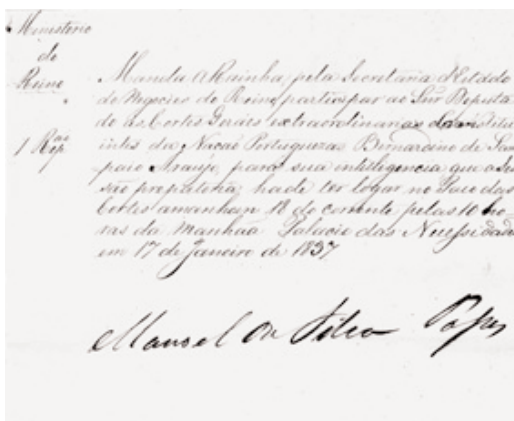 Ministerio
do
Reino
1ª Rep.
Manda A Rainha, pela Secretaria d'Estado
de Negocios do Reino, participar ao Snr Deputa
do ás Cortes Geraes extraordinarias e Constitu
intes da Nação Portugueza Bernardino de Sam
paio Araujo, para sua intelligencia que a Ses
são preparatoria hade ter logar no Paço das
Cortes amanhan 18 do corrente pelas 10 ho-
ras da manhaã Palacio das Necessidades
em 17 de Janeiro de 1837
Manoel da Silva Passos